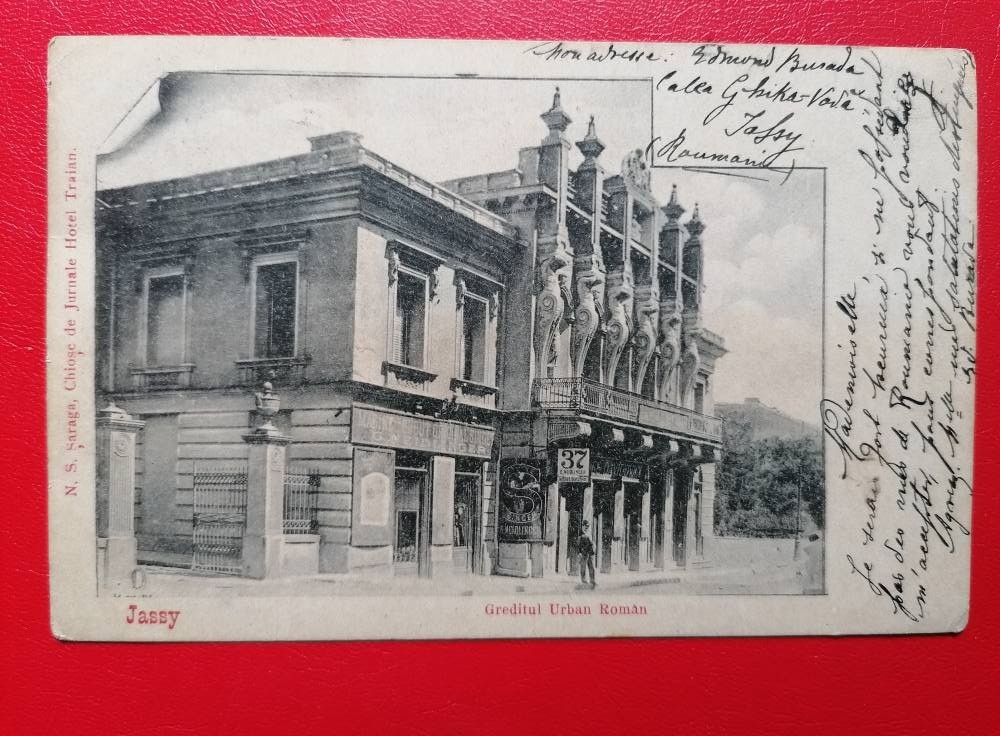 Mon adresse: Edmond Burada
Calea Ghika-Vodă
Jassy
(Roumanie)
N. S. Șaraga, Chioșc de Jurnale Hotel Traian.
37
S
SINGER
Jassy
Greditul Urban Român
Mademoiselle
Je serais fort heureux si en Vs
pas des vues de Roumanie vous voudriez
m'accepter pour correspondant
Agréez Mlle mes salutations distinguées
Ed. Burada